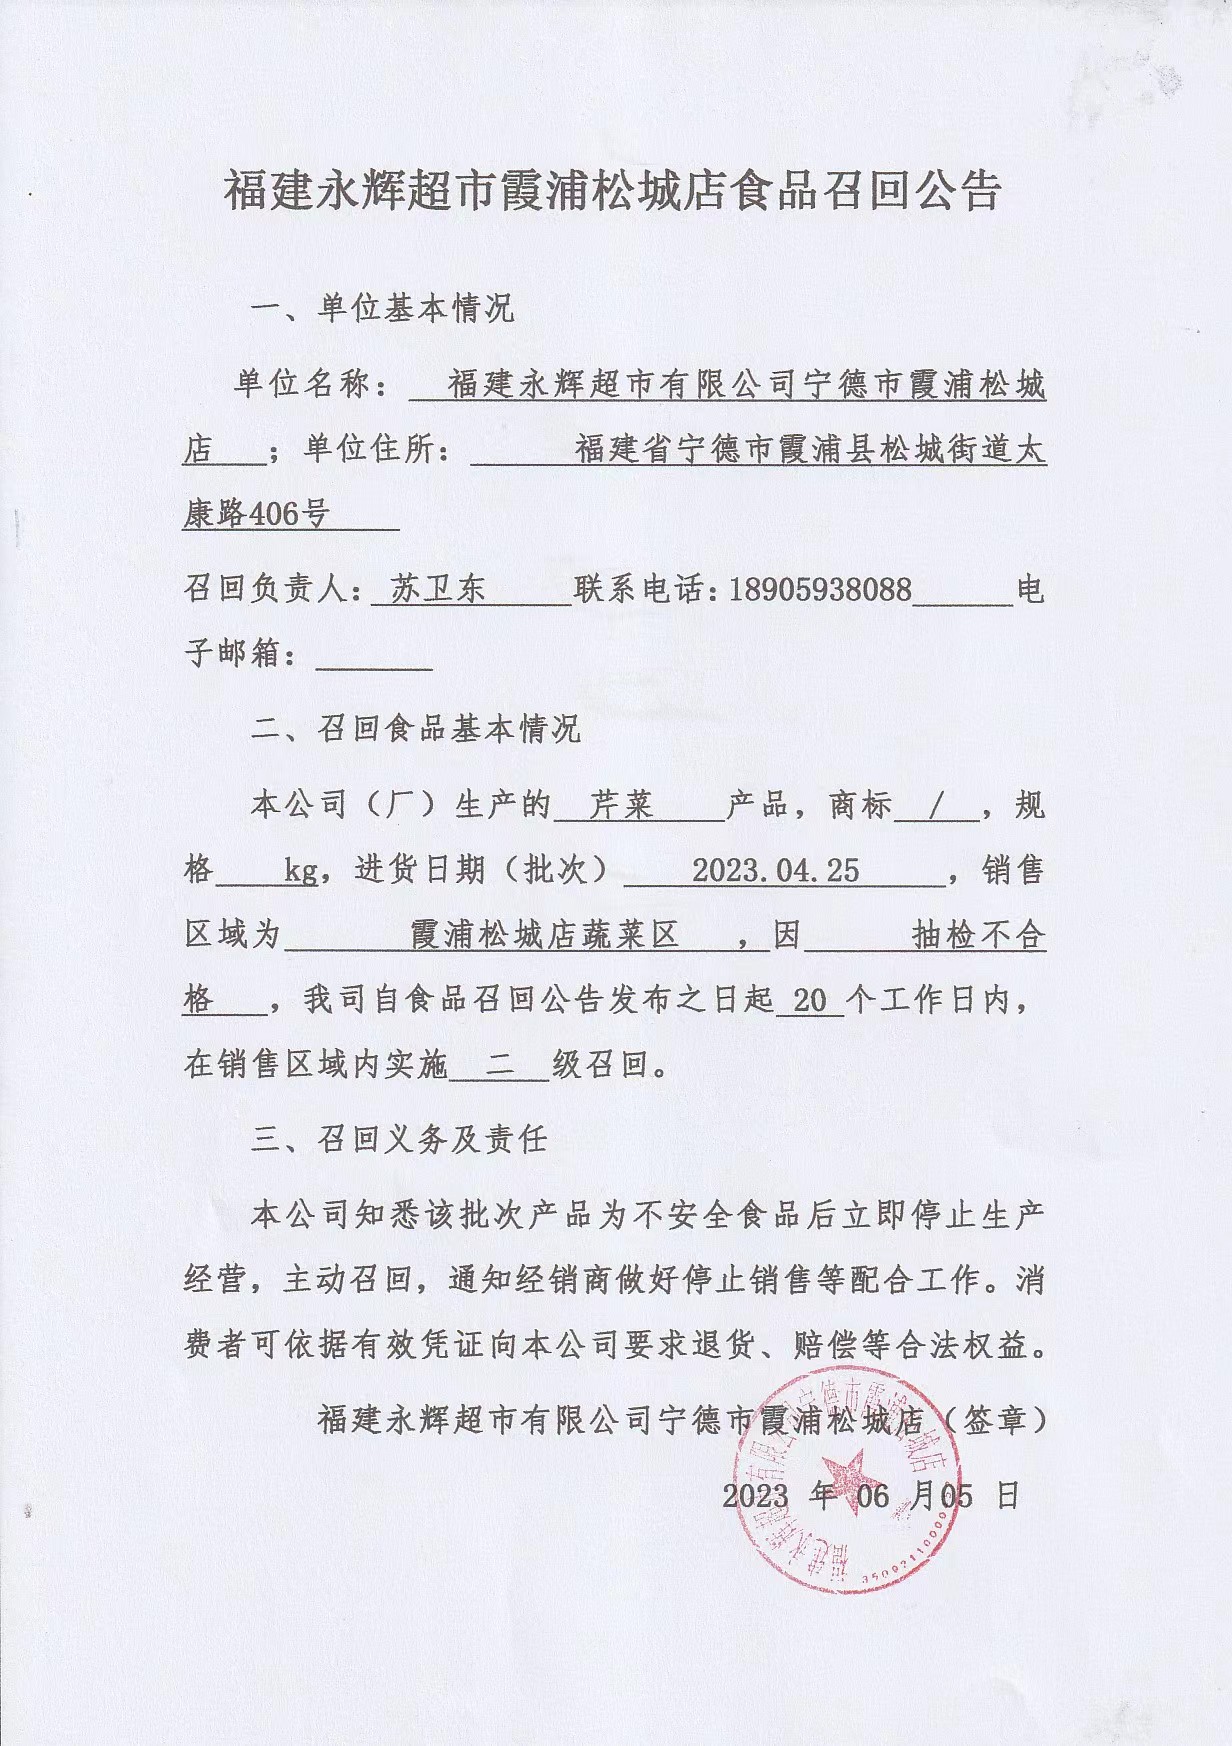 福建永辉超市霞浦松城店食品召回公告
一、单位基本情况
单位名称： 福建永辉超市有限公司宁德市霞浦松城
店 ；单位住所： 福建省宁德市霞浦县松城街道太
康路406号
召回负责人： 苏卫东 联系电话：18905938088 电
子邮箱：
二、召回食品基本情况
本公司（厂）生产的 芹菜 产品，商标 / ，规
格 kg，进货日期（批次） 2023.04.25 ，销售
区域为 霞浦松城店蔬菜区 ，因 抽检不合
格 ，我司自食品召回公告发布之日起 20 个工作日内，
在销售区域内实施 二 级召回。
三、召回义务及责任
本公司知悉该批次产品为不安全食品后立即停止生产
经营，主动召回，通知经销商做好停止销售等配合工作。消
费者可依据有效凭证向本公司要求退货、赔偿等合法权益。
福建永辉超市有限公司宁德市霞浦松城店（签章）
2023 年 06 月05 日
福建永辉超市有限公司宁德市霞浦松城店